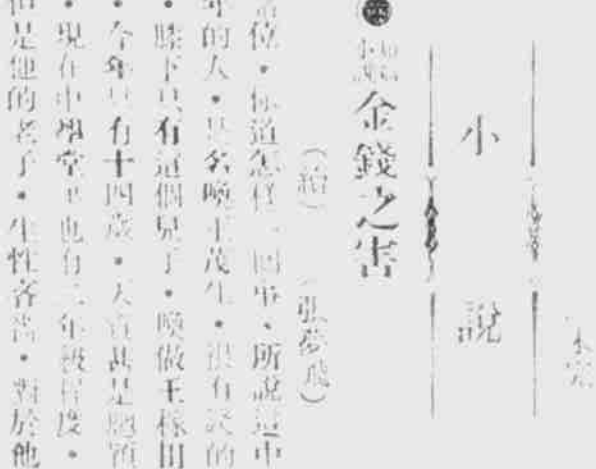 未完
小說
短篇小說 金錢之害
(續) (張夢飛)
諸位・你道怎樣一回事、所說這中
年的人・只名喚王茂生・很有錢的
・膝下只有這個兒子・喚做王稼田
・今年只有十四歲・天資甚是聰穎
・現在中學堂里也有二年級程度・
但是他的老子・生性吝嗇・對於他